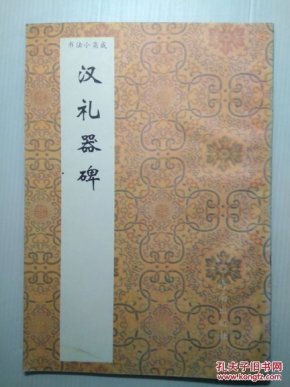 书法小集成
汉礼器碑
孔夫子旧书网